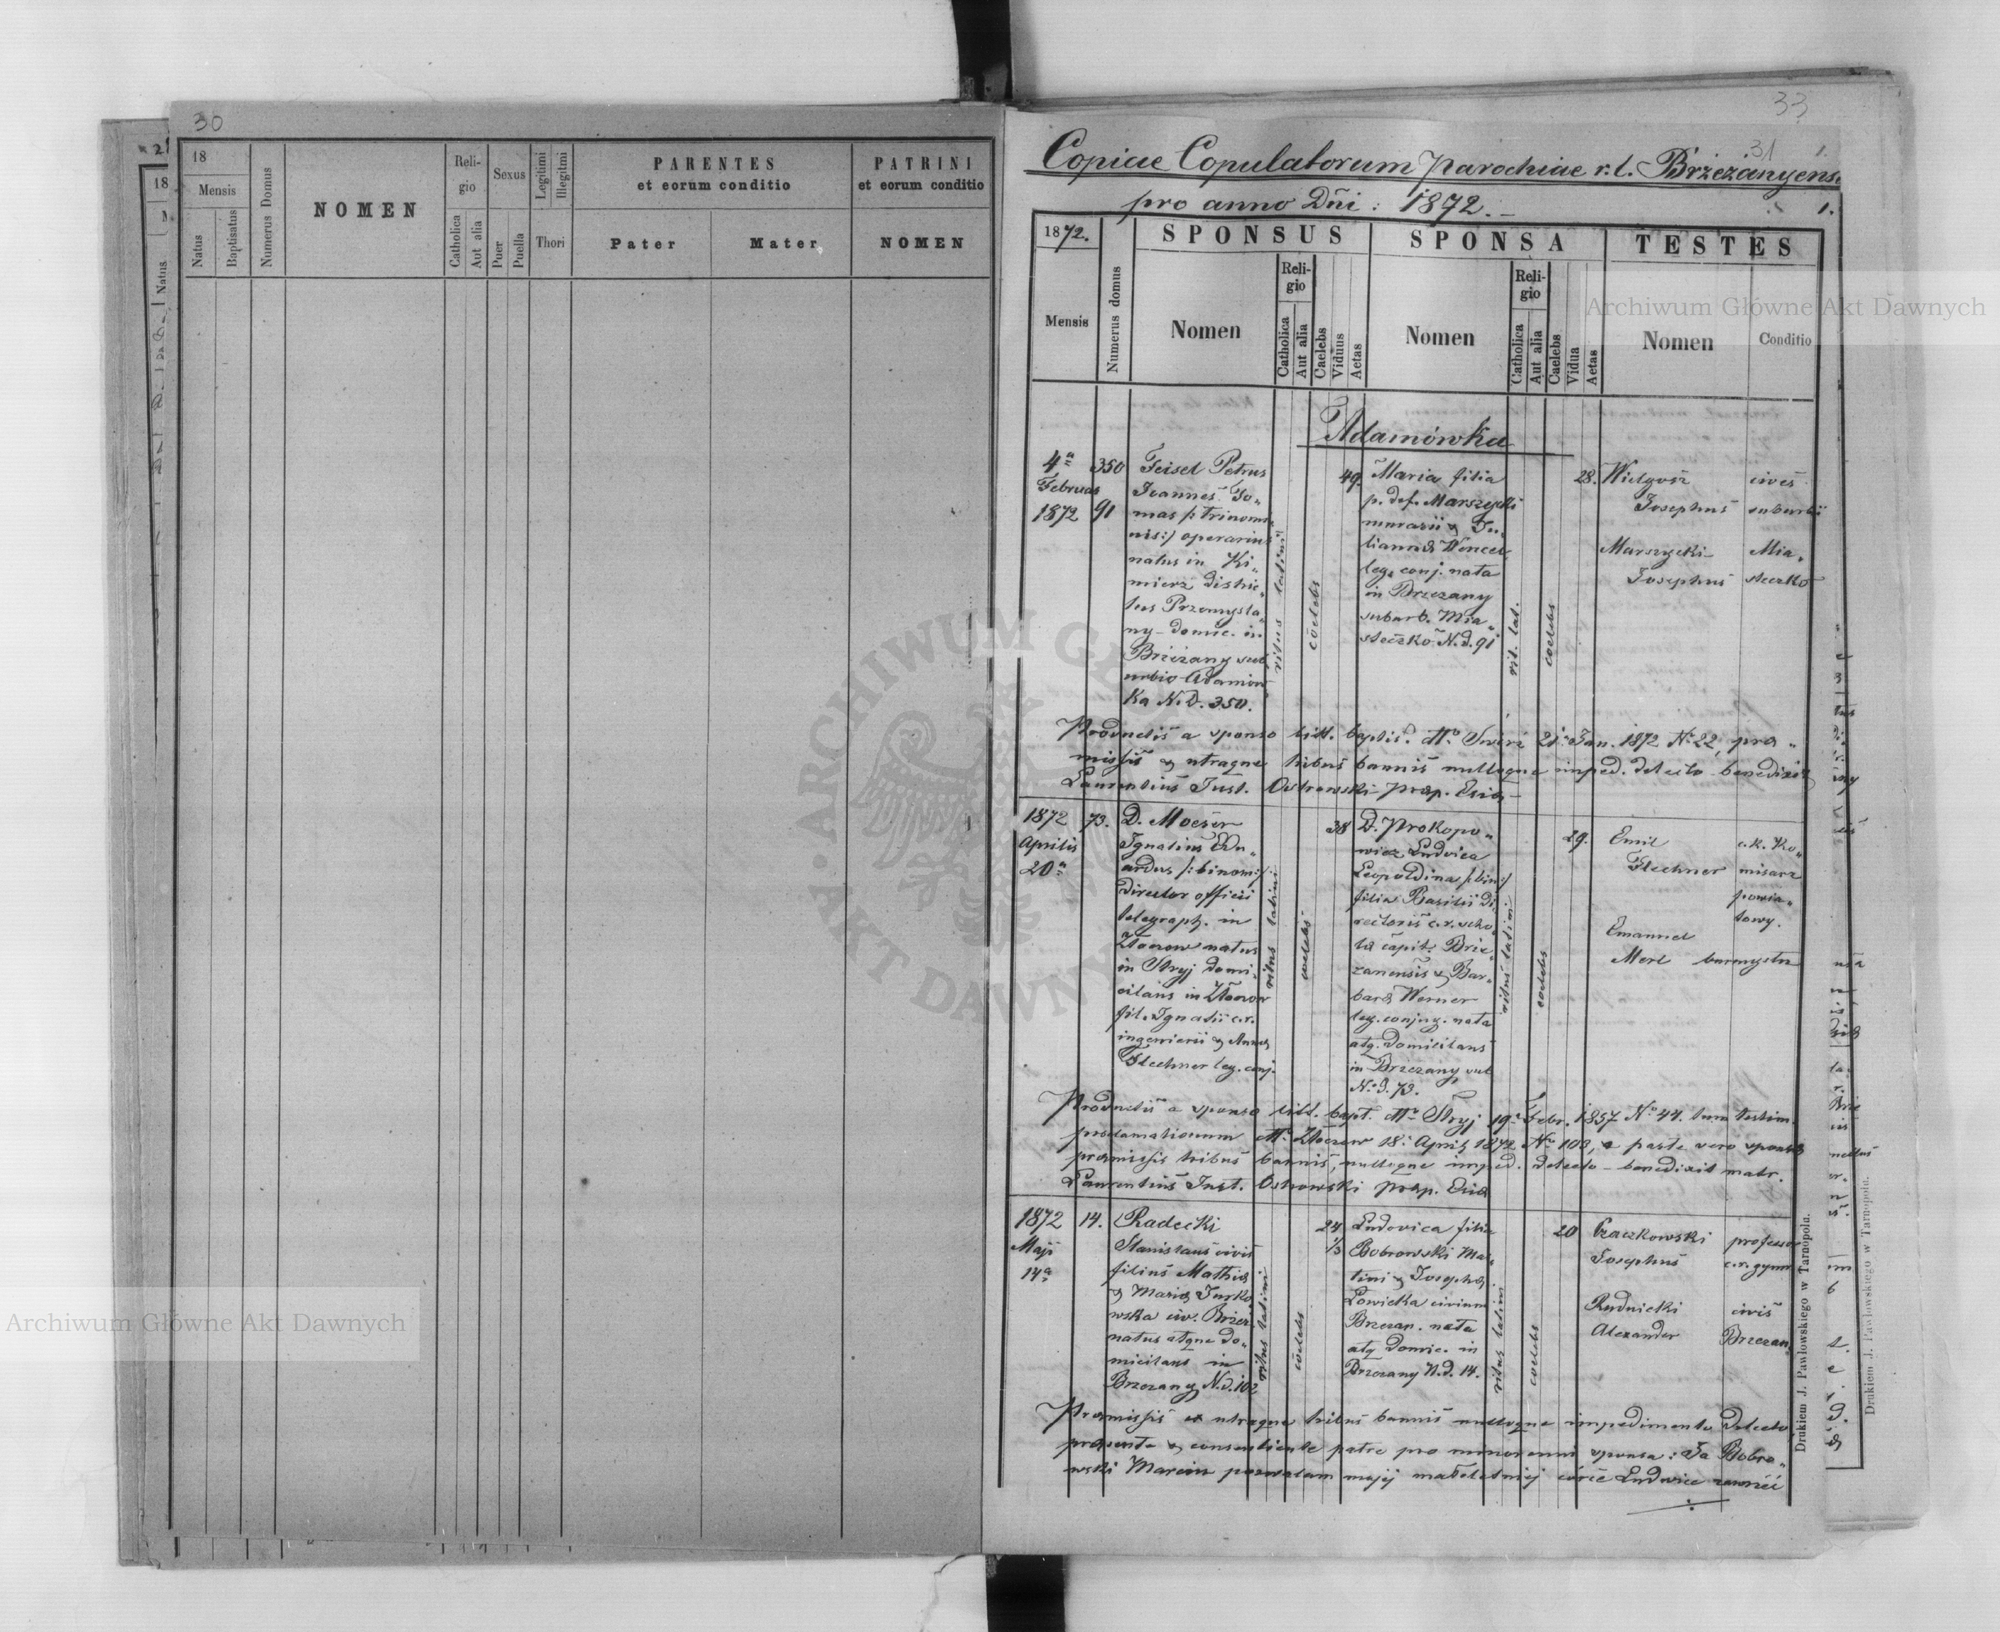 30
18
Mensis
Natus
Baptisatus
Numerus Domus
NOMEN
Reli-
gio
Catholica
Aut alia
Sexus
Puer
Puella
Legitimi
Illegitmi
Thori
PARENTES
et eorum conditio
Pater
Mater
PATRINI
et eorum conditio
NOMEN
33
31
1.
Copiae Copulatorum parochiae r. l. Brzeżanyens.
pro anno Dñi: 1872.
1.
1872.
Mensis
Numerus domus
SPONSUS
Nomen
Reli-
gio
Catholica
Aut alia
Caelebs
Viduus
Aetas
SPONSA
Nomen
Reli-
gio
Catholica
Aut alia
Caelebs
Vidua
Aetas
TESTES
Nomen
Conditio
Adamówka
4ª
Februar
1872
350
91
Feisel Petrus
Joannes To-
mas /: trinomi-
nis :/ operarius
natus in Ki-
mierz distric-
tus Przemyśla-
ny - domic. in
Brzeżany sub-
urbio Adamów-
ka N. d. 350.
ritus latini
coelebs
49.
Maria filia
p. def. Marszycki
murarii &
lianna Wencel
leg. conj. nata
in Brzeżany
suburb. Mia-
steczko N. d. 91
rit. lat.
coelebs
28.
Wielgosz
Josephus
cives
suburbii
Marszycki
Josephus
Mia-
steczko
Productis a sponso litt. baptis. dto Świrz 21. Jan. 1872 No 22, prae-
missis & utraque tribus bannis nulloque imped. detecto benedixit
Laurentius Just. Ostrowski praep. Eccl.
1872
Aprilis
20ª
73.
D. Moeser
Ignatius Edu-
ardus /: binom :/
director officii
telegraph. in
Złoczow natus
in Stryj domi-
cilans in Złoczow
fil. Ignatii c. r.
ingenierii & Anna
Flechner leg. conj.
ritus latini
coelebs
38
D. Prokopo-
wicz Ludvica
Leopoldina /: bin :/
filia Basilii di-
rectoris c. r. scho-
la capit. Brze-
zanensis & Bar-
bara Werner
leg. conjug. nata
atq. domicilans
in Brzeżany sub
No d. 73.
ritus latini
coelebs
29.
Emil
Flechner
c. k. Ko-
misarz
powia-
towy.
Emanuel
Merl burmystrz
Productis a sponso litt. bapt. dto Stryj 19. Febr. 1857 No 44. tum testim.
proclamationum dto Złoczow 18. April 1872 No 108, a parte vero sponsae
praemissis tribus bannis, nulloque imped. detecto - benedixit matr.
Laurentius Just. Ostrowski praep. Eccl
1872
Maji
14ª
14.
Radecki
Stanislaus civis
filius Mathia
& Maria Jurko-
wska civ. Brzeż.
natus atque do-
micilans in
Brzeżany N. d. 102
ritus latini
coelebs
24
1/3
Ludovica filia
Bobrowski Mar-
tini & Josepha
Łowicka civium
Brzezan. nata
atq domic. in
Brzeżany N. d. 14.
ritus latini
coelebs
20
Czaczkowski
Josephus
professor
c. r. gymn
Rudnicki
Alexander
civis
Brzezan.
Praemissis ex utraque tribus bannis nulloque impedimento detecto,
praesente & consentiente patre pro minorenni sponsa: Ja Bobro-
wski Marcin pozwalam mojej małoletniej córce Ludwice zawrzeć
Drukiem J. Pawłowskiego w Tarnopolu.
Drukiem J. Pawłowskiego w Tarnopolu.
Archiwum Główne Akt Dawnych
Archiwum Główne Akt Dawnych
ARCHIWUM GŁÓWNE AKT DAWNYCH